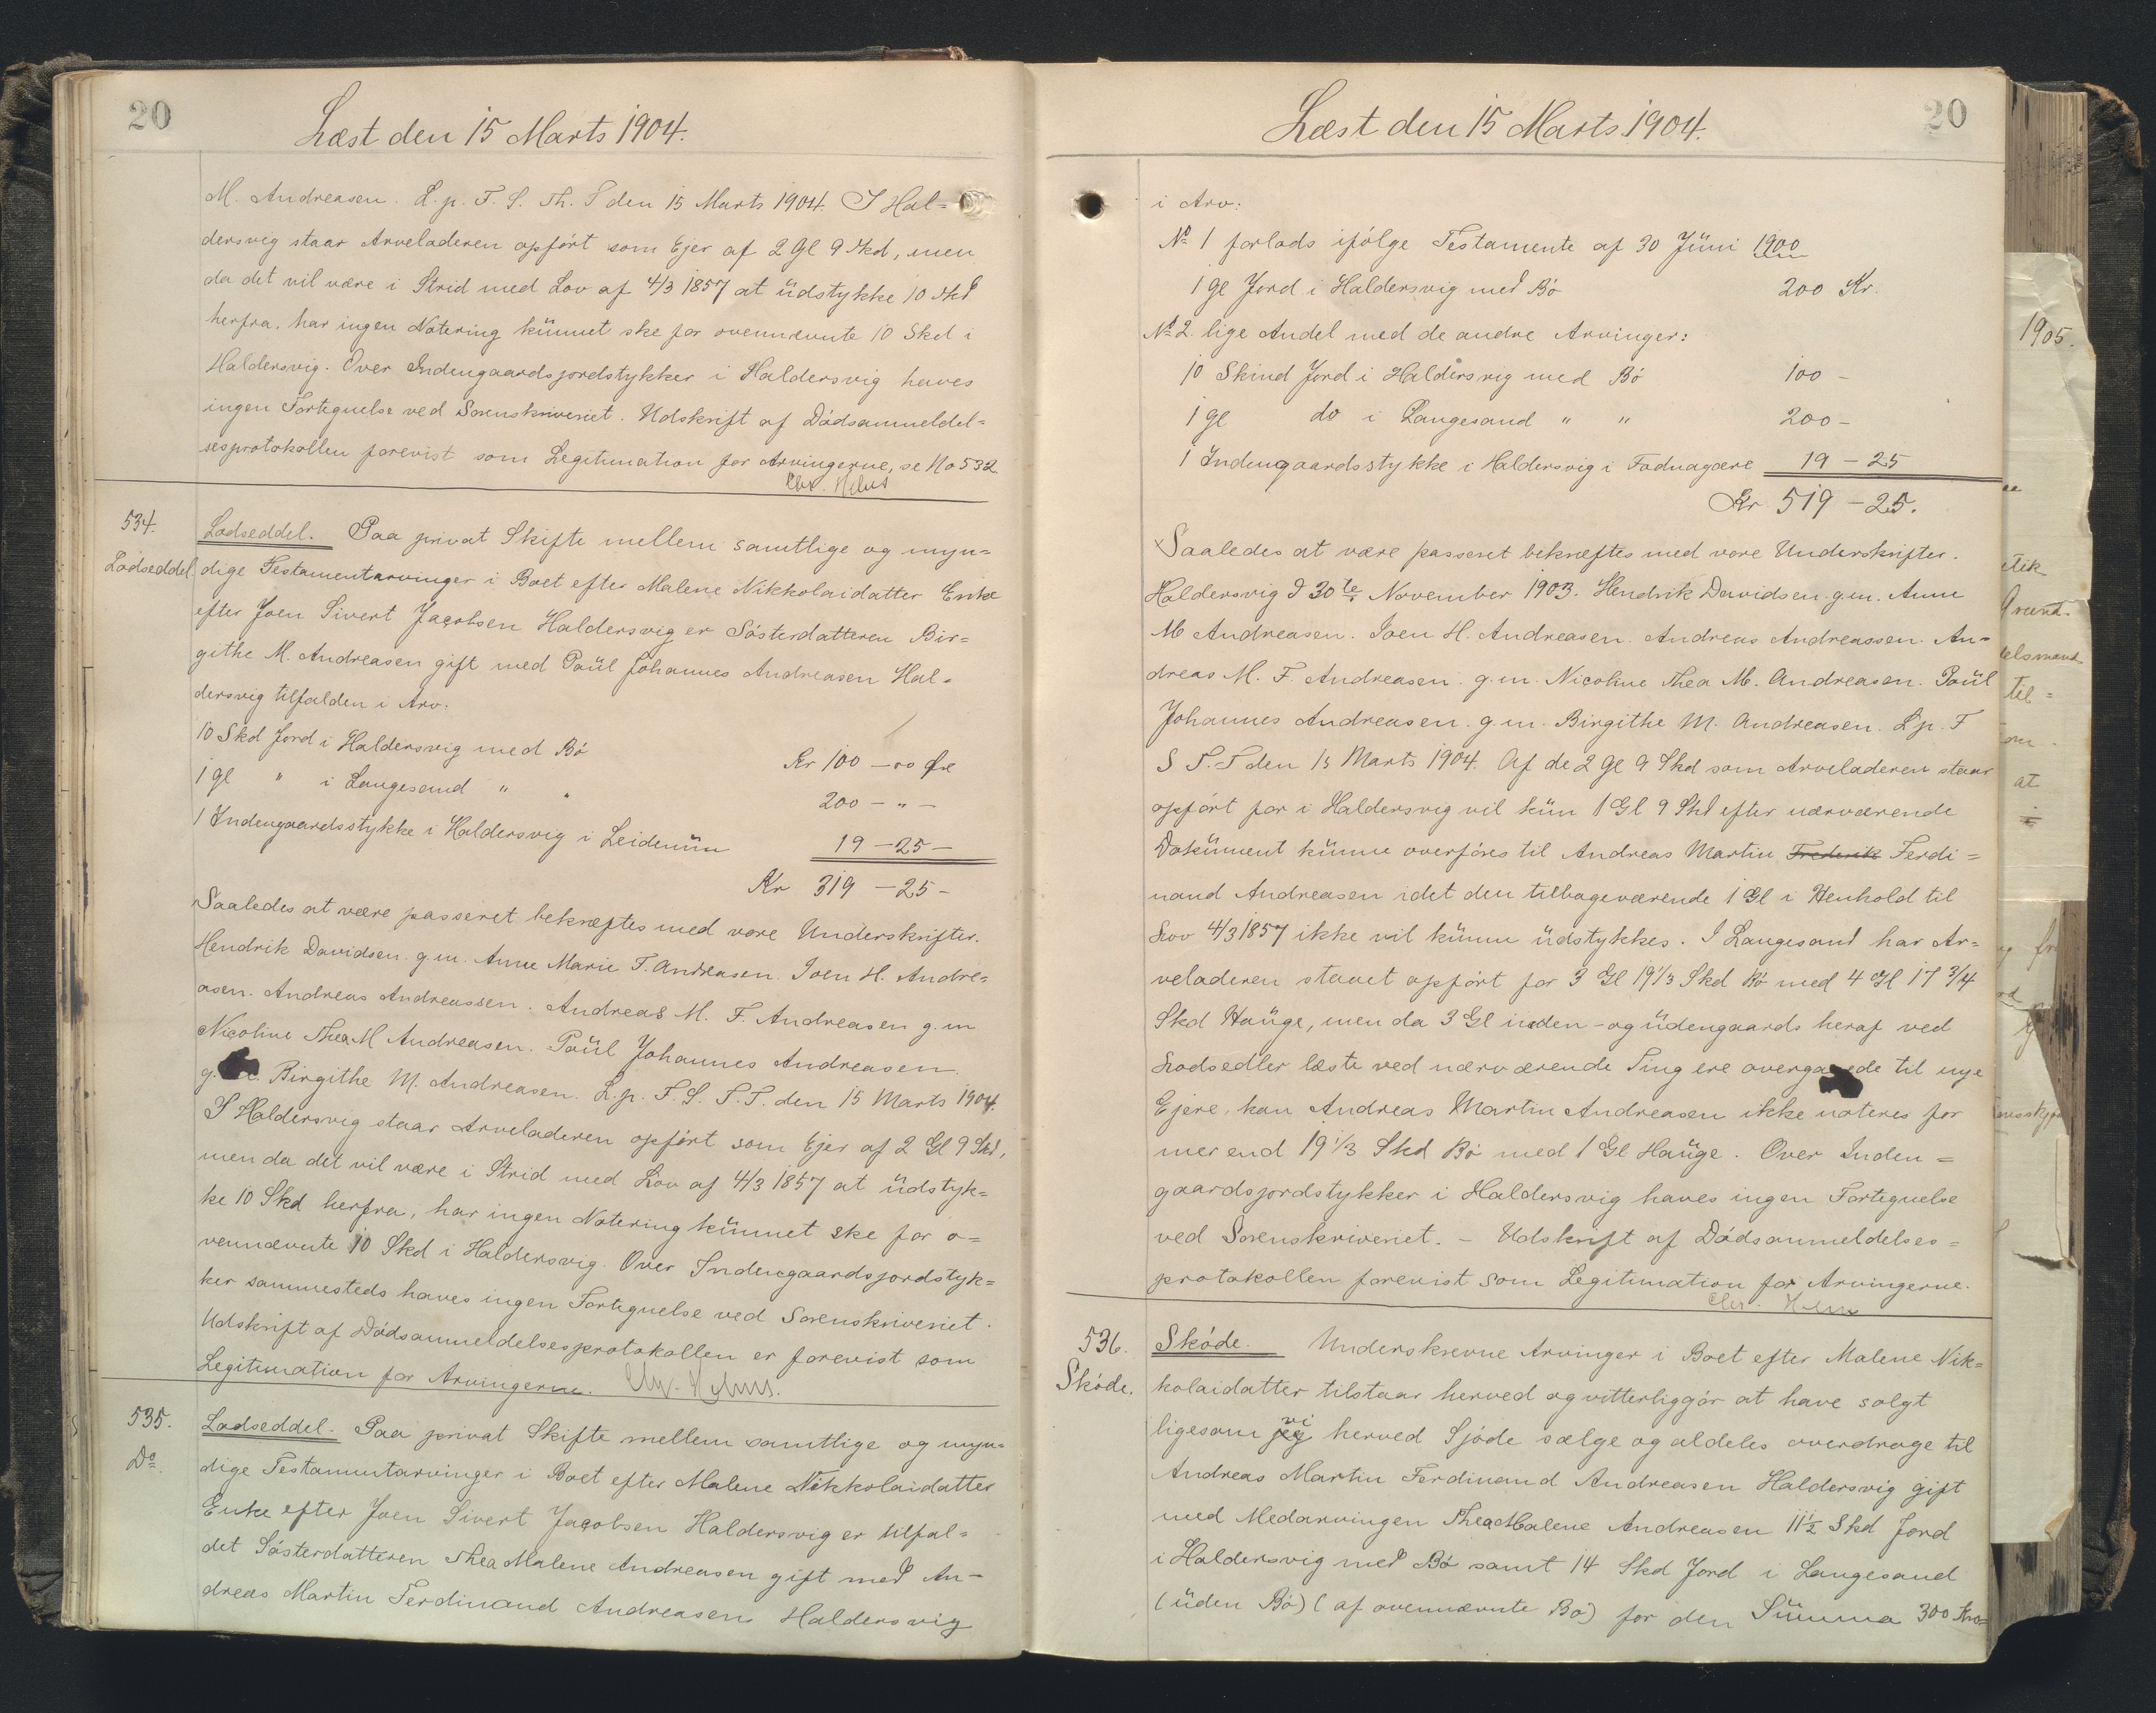 20
Læst den 15 Marts 1904.
M. Andreasen. L. p. F. S. Th. S den 15 Marts 1904. I Hal=
dersvig staar Arveladeren opfört som Ejer af 2 Gl 9 Skd, men
da det vil være i Strid med Lov af 4/3 1857 at üdstykke 10 Skd
herfra, har ingen Notering künnet ske for ovennævnte 10 Skd i
Haldersvig. Over Indengaardsjordstykker i Haldersvig haves
ingen Fortegnelse ved Sorenskriveriet. Udskrift af Dödsanmeldel=
sesprotokollen forevist som Legitimation for Arvingerne, se No 532
534.
Lodseddel.
Lodseddel. Paa privat Skifte mellem samtlige og myn=
dige Testamentarvinger i Boet efter Malene Nikkolaidatter Enke
efter Joen Sivert Jacobsen Haldersvig er Sösterdatteren Bir=
githe M. Andreasen gift med Poül Johannes Andreasen Hal=
dersvig tilfalden i Arv:
10 Skd Jord i Haldersvig med Bö Kr 100 - 00 Øre
1 gl " i Langesand " " 200 - " -
1 Indengaardsstykke i Haldersvig i Leidenüm 19 - 25 -
Kr 319 - 25 -
Saaledes at være passeret bekræftes med vore Underskrifter.
Hendrik Davidsen. g.m. Anne Marie F. Andreasen. Joen H. Andre=
asen. Andreas Andreassen. Andreas M. F. Andreasen g.m
Nicoline Thea M Andreasen. Poül Johannes Andreasen.
g. Birgithe M. Andreasen. L. p. F. S. T. T. den 15 Marts 1904.
I Haldersvig staar Arveladeren opfört som Ejer af 2 Gl 9 Skd,
men da det vil være i Strid med Lov af 4/3 1857 at üdstyk=
ke 10 Skd herfra, har ingen Notering künnet ske for o=
vennævnte 10 Skd i Haldersvig. Over Indengaardsjordstyk=
ker sammesteds haves ingen Fortegnelse ved Sorenskriveriet.
Udskrift af Dödsanmeldelsesprotokollen er forevist som
Legitimation for Arvingerne.
535.
Do.
Lodseddel. Paa privat Skifte mellem samtlige og myn=
dige Testamentarvinger i Boet efter Malene Nikkolaidatter
Enke efter Joen Sivert Jacobsen Haldersvig er tilfal=
det Sösterdatteren Thea Malene Andreasen gift med An=
dreas Martin Ferdinand Andreasen Haldersvig
20
Læst den 15 Marts 1904.
i Arv:
No 1 forlods ifölge Testamente af 30 Jüni 1900
1 gl Jord i Haldersvig med Bö 200 Kr.
No 2. lige Andel med de andre Arvinger:
10 Skind Jord i Haldersvig med Bö 100 -
1 gl do i Langesand " " 200 -
1 Indengaardsstykke i Haldersvig i Fodnagære 19 - 25
Kr 519 - 25.
Saaledes at være passeret bekræftes med vore Underskrifter.
Haldersvig d 30te November 1903. Hendrik Davidsen. g.m. Anne
M Andreasen. Joen H. Andreasen. Andreas Andreassen. An=
dreas M. F. Andreasen. g.m. Nicoline Thea M. Andreasen. Poül
Johannes Andreasen. g.m. Birgithe M. Andreasen. L p. F
S T. T den 15 Marts 1904. Af de 2 gl 9 Skd som Arveladeren staar
opfört for i Haldersvig vil kün 1 Gl 9 Skd efter nærværende
Doküment künne overföres til Andreas Martin Frederik Ferdi=
nand Andreasen idet den tilbageværende 1 Gl i Henhold til
Lov 4/3 1857 ikke vil künne üdstykkes. I Langesand har Ar=
veladeren staaet opfört for 3 Gl 19 1/3 Skd Bö med 4 Gl 17 3/4
Skd Haüge, men da 3 Gl inden- og üdengaards heraf ved
Lodsedler læste ved nærværende Ting ere overgaaede til nye
Ejere, kan Andreas Martin Andreasen ikke noteres for
mer end 19 1/3 Skd Bö med 1 Gl Haüge. Over Inden=
gaardsjordstykker i Haldersvig haves ingen Fortegnelse
ved Sorenskriveriet. - Udskrift af Dödsanmeldelses=
protokollen forevist som Legitimation for Arvingerne.
536.
Sköde.
Sköde. Underskrevne Arvinger i Boet efter Malene Nik=
kolaidatter tilstaar herved og vitterliggör at have solgt
ligesom jeg vi herved Sjöde sælge og aldeles overdrage til
Andreas Martin Ferdinand Andreasen Haldersvig gift
med Medarvingen Thea Malene Andreasen 11 1/2 Skd Jord
i Haldersvig med Bö samt 14 Skd Jord i Langesand
(üden Bö) (af ovennævnte Bö) for den Sümma 300 Kro=
1905.